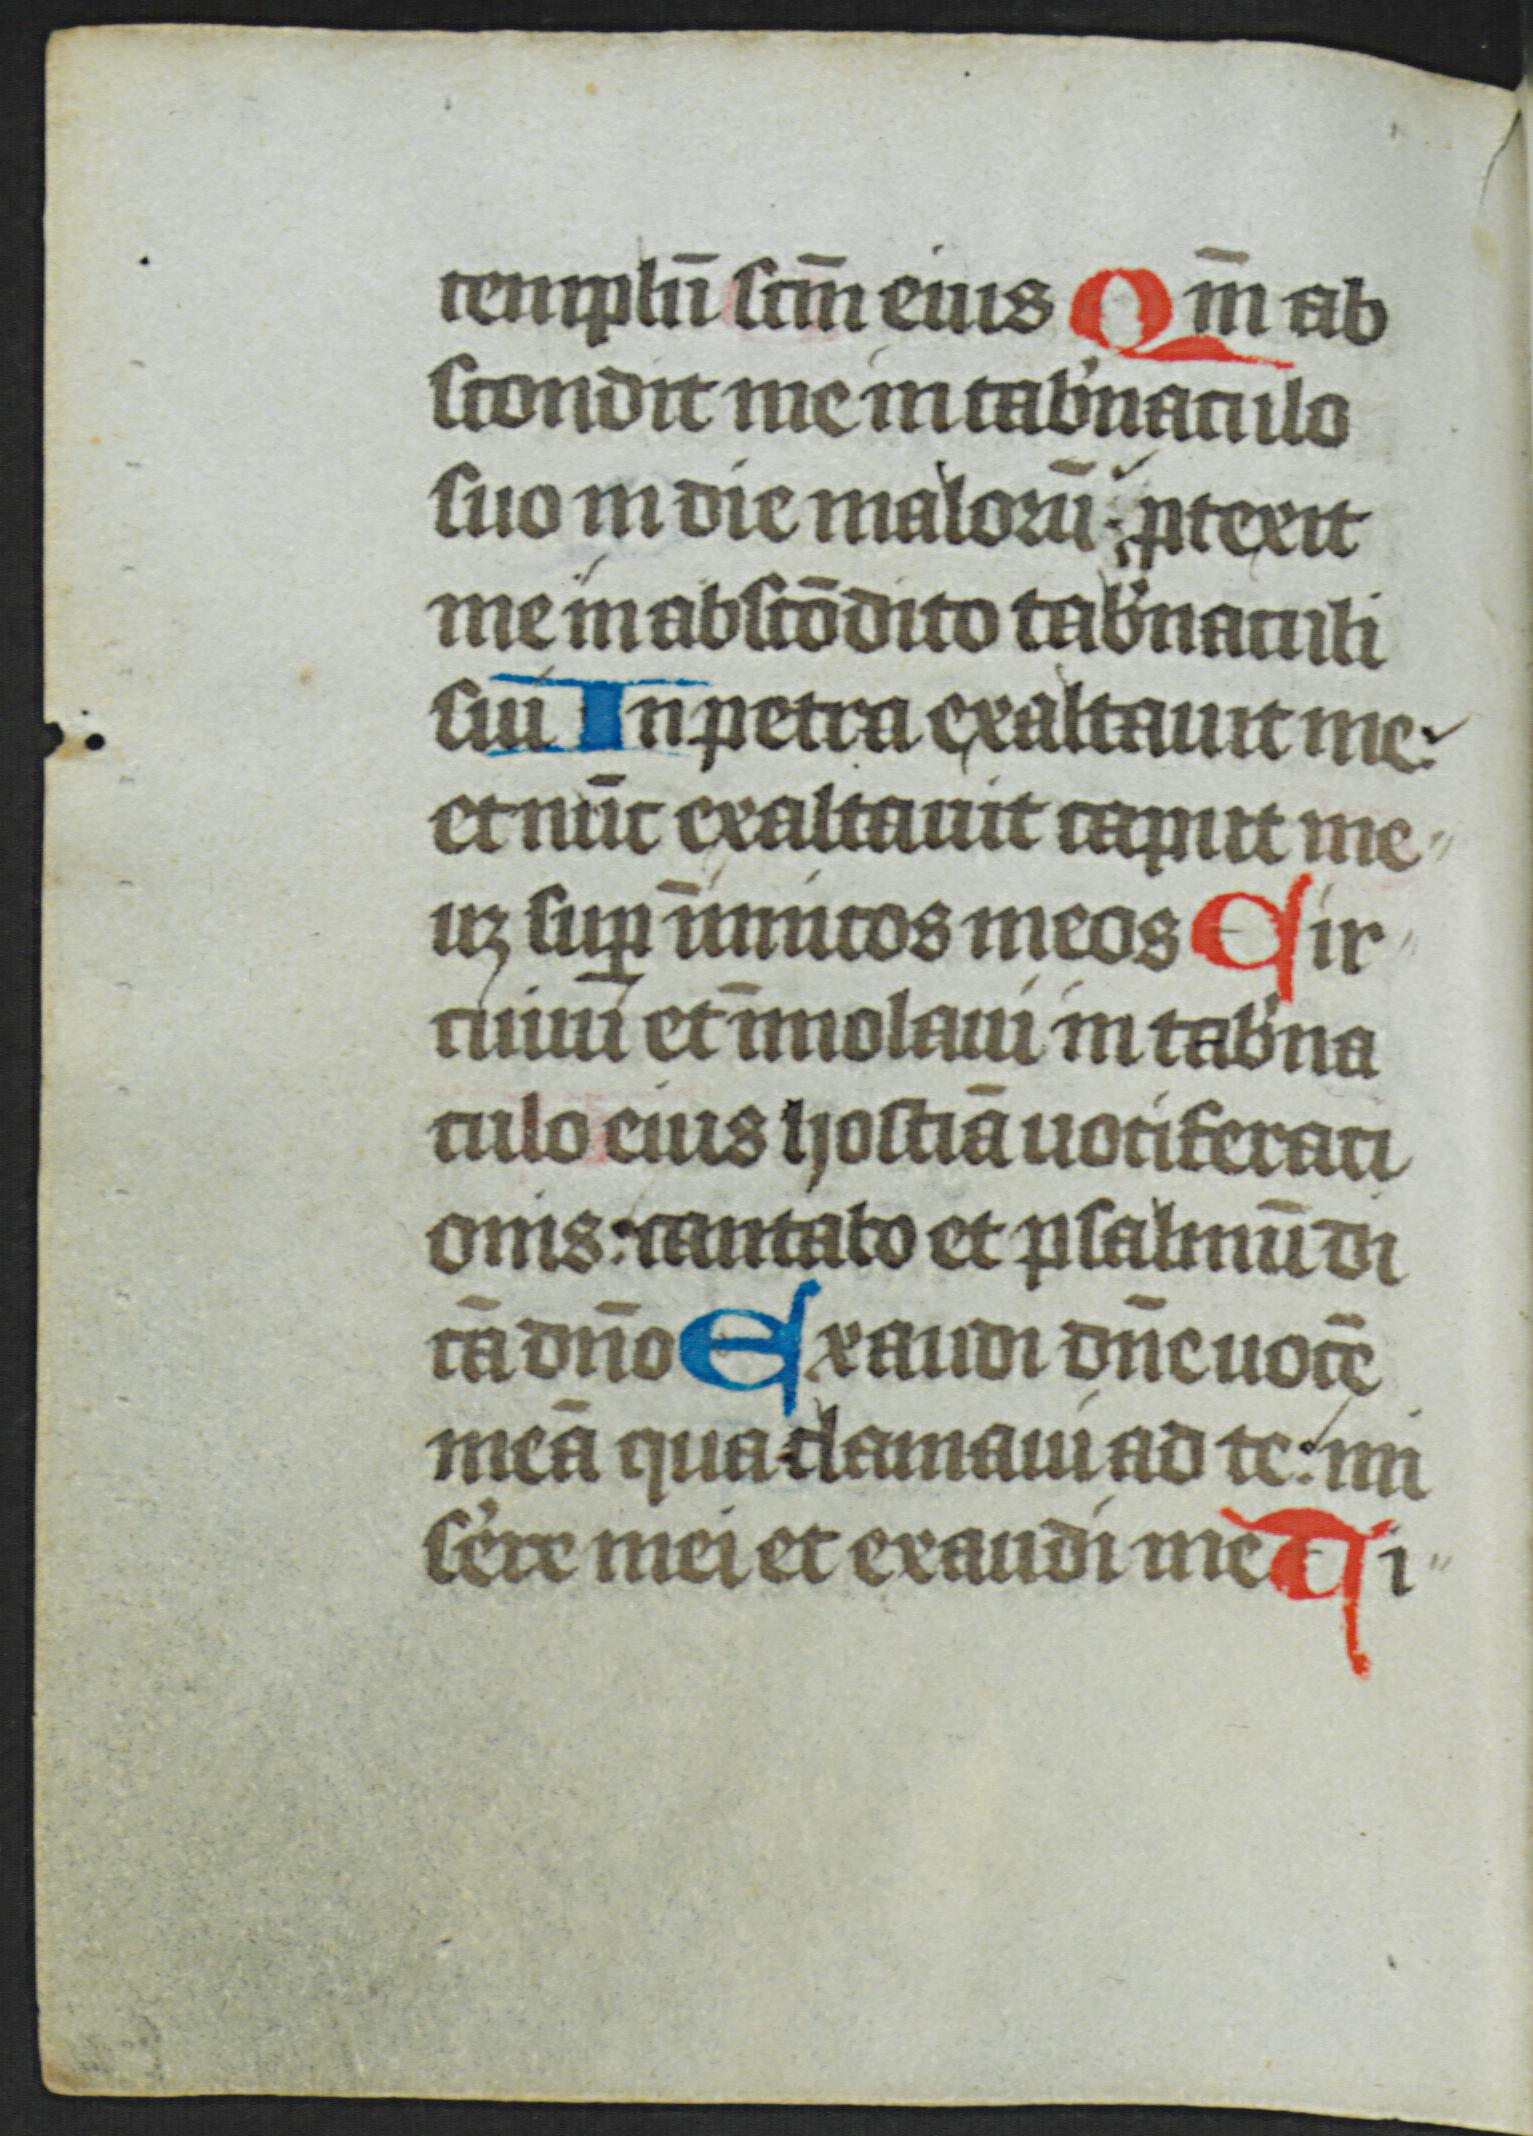 templū scm̄ eius Qm̄ ab
scondit me in tab'naculo
suo in die malorū: ptexit
me in abscōdito tab'naculi
sui In petra exaltauit me:
et nūc exaltauit caput me„
uꝫ suꝑ īimicos meos Cir„
cuiuī et īmolaui in tab'na
culo eius hostiā uociferaci
onis: cantabo et psalmū di
cā dn̄o Exaudi dn̄e uocē
meā qua clamaui ad te: mi
s'ere mei et exaudi me Ti„